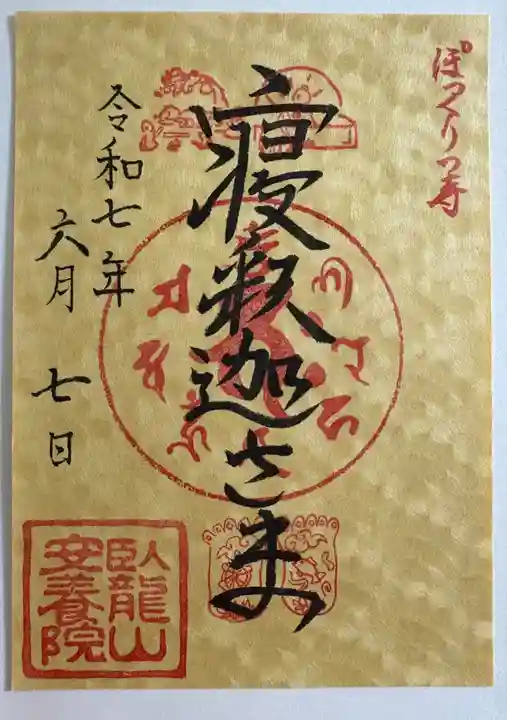 ぽっくりの寺
寝釈迦さま
令和七年
六月 七日
臥龍山
安養院